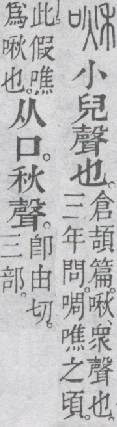 啾小兒聲也。倉頡篇。啾、衆聲也。三年問。啁噍之頃。
此假噍爲啾也。从口。秋聲。卽由切。三部。